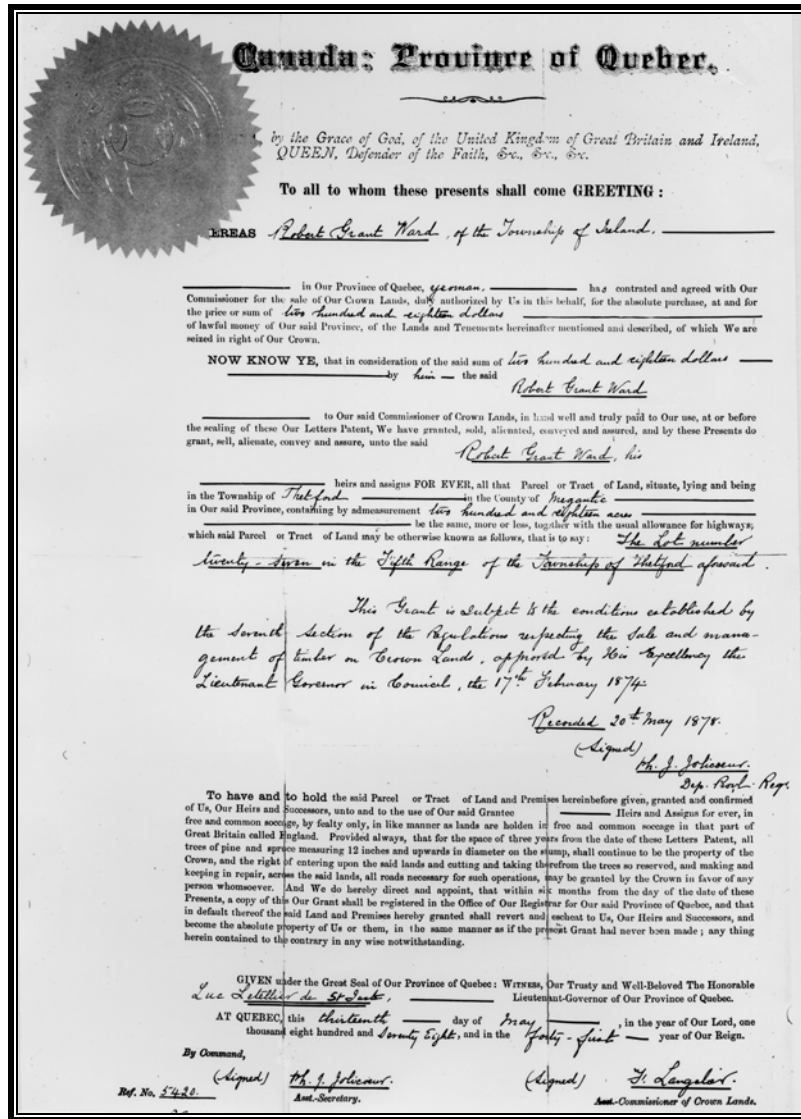 Canada: Province of Quebec.
by the Grace of God, of the United Kingdom of Great Britain and Ireland,
QUEEN, Defender of the Faith, &c., &c., &c.
To all to whom these presents shall come GREETING :
EREAS Robert Grant Ward, of the Township of Ireland,
in Our Province of Quebec, yeoman, has contrated and agreed with Our
Commissioner for the sale of Our Crown Lands, duly authorized by Us in this behalf, for the absolute purchase, at and for
the price or sum of two hundred and eighteen dollars
of lawful money of Our said Province, of the Lands and Tenements hereinafter mentioned and described, of which We are
seized in right of Our Crown.
NOW KNOW YE, that in consideration of the said sum of two hundred and eighteen dollars
by him the said
Robert Grant Ward
to Our said Commissioner of Crown Lands, in hand well and truly paid to Our use, at or before
the sealing of these Our Letters Patent, We have granted, sold, alienated, conveyed and assured, and by these Presents do
grant, sell, alienate, convey and assure, unto the said
Robert Grant Ward, his
heirs and assigns FOR EVER, all that Parcel or Tract of Land, situate, lying and being
in the Township of Thetford in the County of Megantic
in Our said Province, containing by admeasurement two hundred and eighteen acres
be the same, more or less, together with the usual allowance for highways;
which said Parcel or Tract of Land may be otherwise known as follows, that is to say: The Lot number
twenty-seven in the Fifth Range of the Township of Thetford aforesaid.
This Grant is subject to the conditions established by
the Seventh Section of the Regulations respecting the Sale and mana-
gement of timber on Crown Lands, approved by His Excellency the
Lieutenant Governor in Council, the 17th February 1874.
Recorded 20th May 1878.
(Signed)
Ph. J. Jolicoeur.
Dep. Regr.
To have and to hold the said Parcel or Tract of Land and Premises hereinbefore given, granted and confirmed
of Us, Our Heirs and Successors, unto and to the use of Our said Grantee Heirs and Assigns for ever, in
free and common soccage, by fealty only, in like manner as lands are holden in free and common socage in that part of
Great Britain called England. Provided always, that for the space of three years from the date of these Letters Patent, all
trees of pine and spruce measuring 12 inches and upwards in diameter on the stump, shall continue to be the property of the
Crown, and the right of entering upon the said lands and cutting and taking therefrom the trees so reserved, and making and
keeping in repair, across the said lands, all roads necessary for such operations, may be granted by the Crown in favor of any
person whomsoever. And We do hereby direct and appoint, that within six months from the day of the date of these
Presents, a copy of this Our Grant shall be registered in the Office of Our Registrar for Our said Province of Quebec, and that
in default thereof the said Land and Premises hereby granted shall revert and escheat to Us, Our Heirs and Successors, and
become the absolute property of Us or them, in the same manner as if the present Grant had never been made ; any thing
herein contained to the contrary in any wise notwithstanding.
GIVEN under the Great Seal of Our Province of Quebec: WITNESS, Our Trusty and Well-Beloved The Honorable
Luc Letellier de St Just, Lieutenant-Governor of Our Province of Quebec.
AT QUEBEC, this thirteenth day of May , in the year of Our Lord, one
thousand eight hundred and Seventy Eight, and in the forty-first year of Our Reign.
By Command,
(Signed) Ph. J. Jolicoeur. (Signed) F. Langelier.
Ref. No. 5420. Asst.-Secretary. Asst.-Commissioner of Crown Lands.